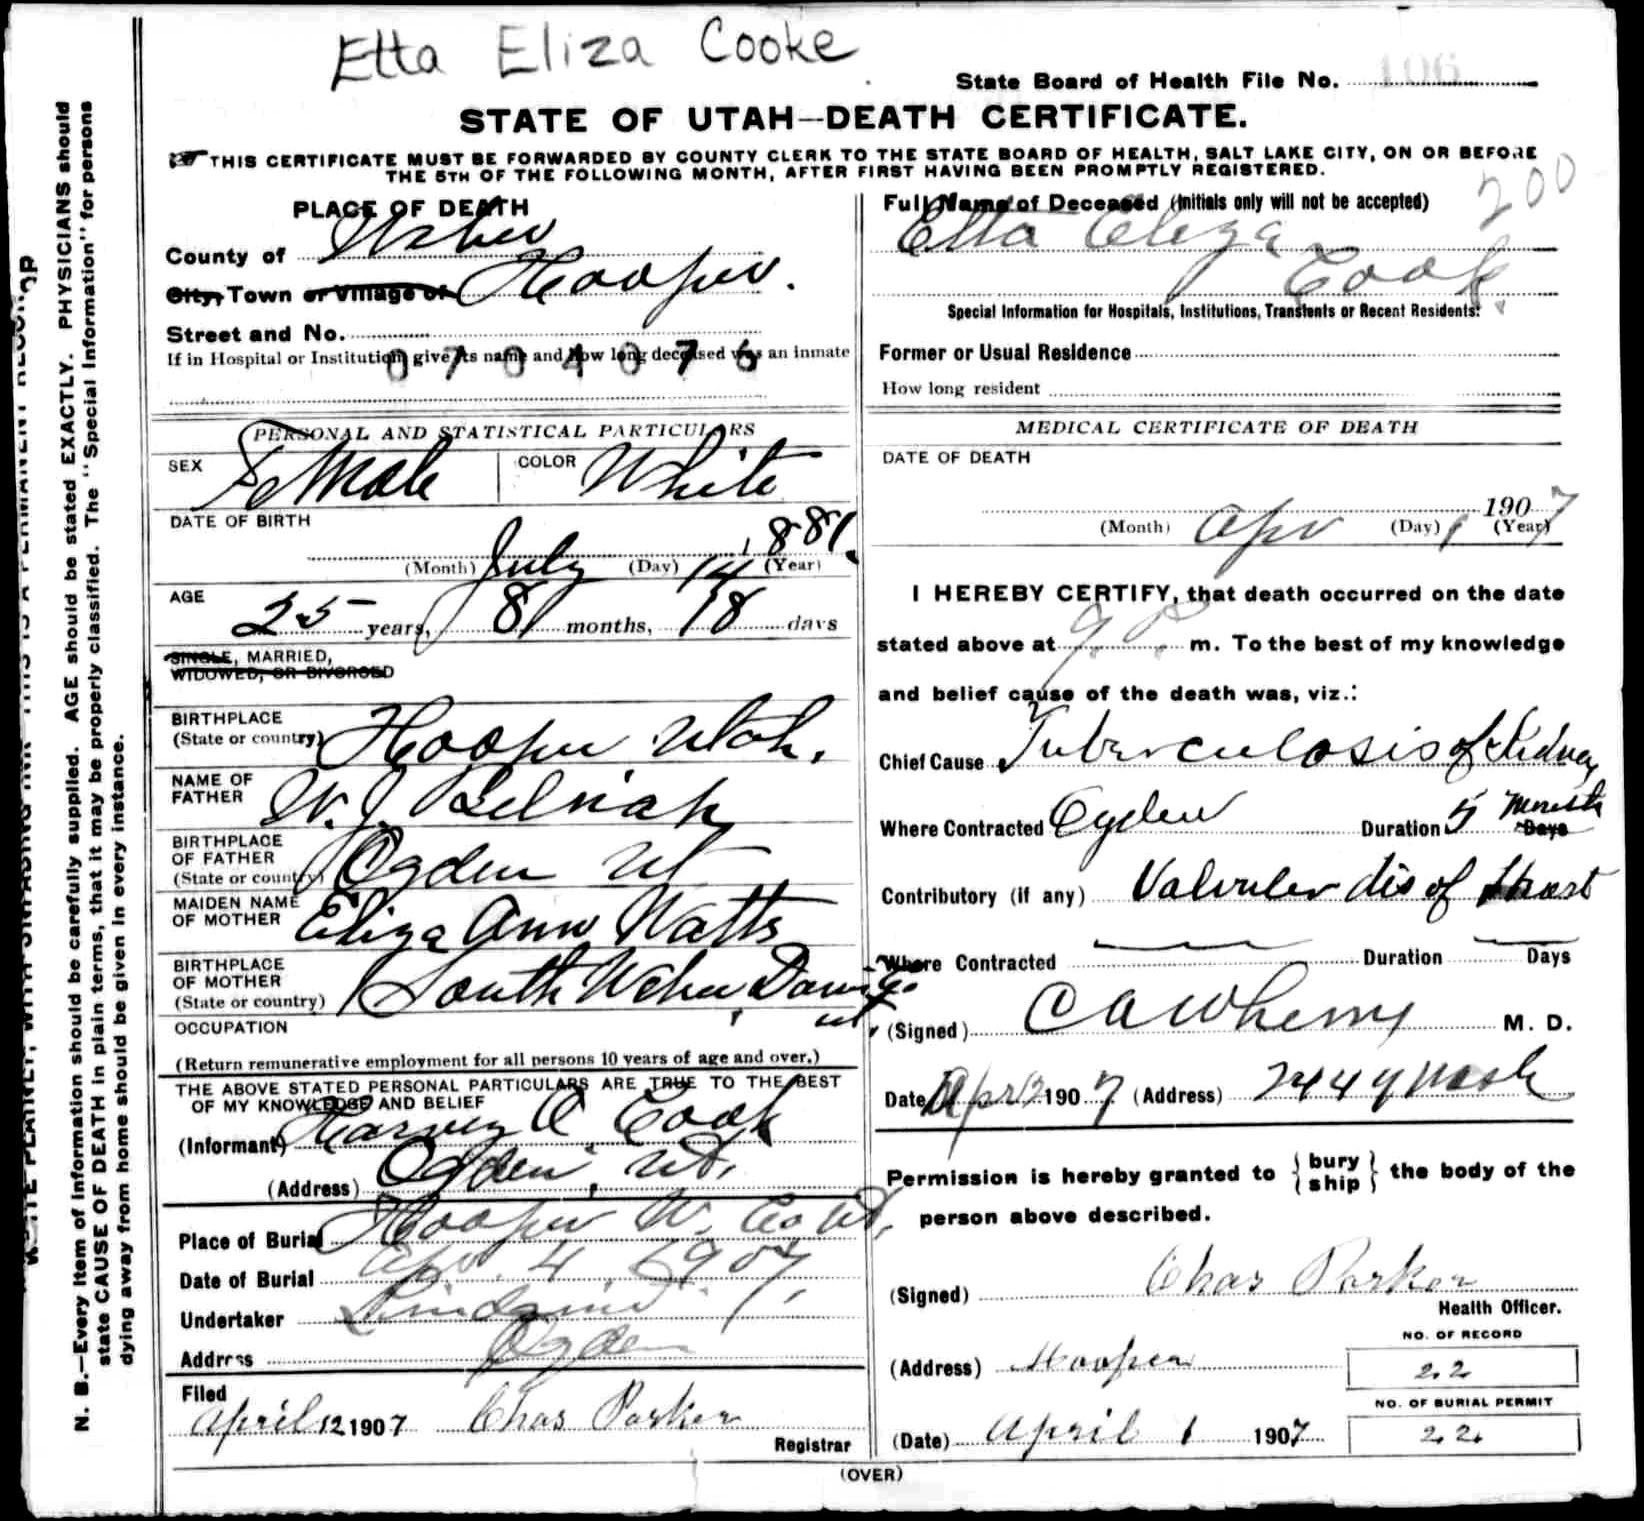 Etta Eliza Cooke
State Board of Health File No. 106
STATE OF UTAH—DEATH CERTIFICATE.
THIS CERTIFICATE MUST BE FORWARDED BY COUNTY CLERK TO THE STATE BOARD OF HEALTH, SALT LAKE CITY, ON OR BEFORE
THE 5TH OF THE FOLLOWING MONTH, AFTER FIRST HAVING BEEN PROMPTLY REGISTERED.
200
N. B.—Every item of information should be carefully supplied. AGE should be stated EXACTLY. PHYSICIANS should
state CAUSE OF DEATH in plain terms, that it may be properly classified. The "Special Information" for persons
dying away from home should be given in every instance.
PLACE OF DEATH
County of Weber
City, Town or Village of Hooper.
Street and No.
If in Hospital or Institution give its name and how long deceased was an inmate
0704076
PERSONAL AND STATISTICAL PARTICULARS
SEX Female COLOR White
DATE OF BIRTH
(Month) July (Day) 14 (Year) 1881.
AGE
25 years, 8 months, 18 days
SINGLE, MARRIED,
WIDOWED, OR DIVORCED
BIRTHPLACE
(State or country) Hooper Utah.
NAME OF
FATHER W. J. Belnap
BIRTHPLACE
OF FATHER
(State or country) Ogden Ut
MAIDEN NAME
OF MOTHER Eliza Ann Watts
BIRTHPLACE
OF MOTHER
(State or country) South Weber, Davis Co. Ut.
OCCUPATION
(Return remunerative employment for all persons 10 years of age and over.)
THE ABOVE STATED PERSONAL PARTICULARS ARE TRUE TO THE BEST
OF MY KNOWLEDGE AND BELIEF
(Informant) Harvey O. Cook
(Address) Ogden, Ut.
Place of Burial Hooper W. Co Ut.
Date of Burial Apr. 4, 1907,
Undertaker
Address Ogden
Filed
April 12 1907 Chas Parker
Registrar
Full Name of Deceased (Initials only will not be accepted)
Etta Eliza
Cook
Special Information for Hospitals, Institutions, Transients or Recent Residents.
Former or Usual Residence
How long resident
MEDICAL CERTIFICATE OF DEATH
DATE OF DEATH
1907
(Month) Apr (Day) 1 (Year)
I HEREBY CERTIFY, that death occurred on the date
stated above at 9. P. m. To the best of my knowledge
and belief cause of the death was, viz.:
Chief Cause Tuberculosis of Kidney
Where Contracted Ogden Duration 5 Months Days
Contributory (if any) Valvuler dis of Heart
Where Contracted Duration Days
(Signed) C A Wherry M. D.
Date Apr 1907 (Address) 2449 Wash
Permission is hereby granted to { bury
ship } the body of the
person above described.
(Signed) Chas Parker
Health Officer.
NO. OF RECORD
(Address) Hooper 22
NO. OF BURIAL PERMIT
(Date) April 1 1907 22
(OVER)